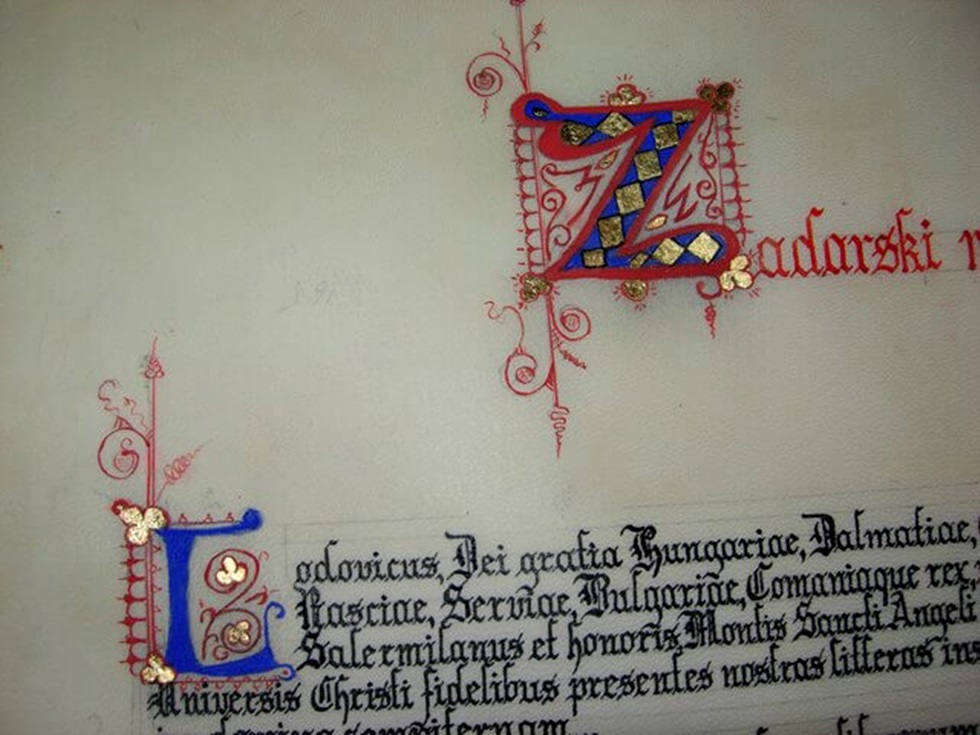 Zadarski
Lodovicus, Dei gratia Hungariae, Dalmatiae,
Rasciae, Serviae, Bulgariae, Comaniaque rex
Salermitanus et honoris Montis Sancti Angeli
Universis Christi fidelibus presentes nostras litteras ins